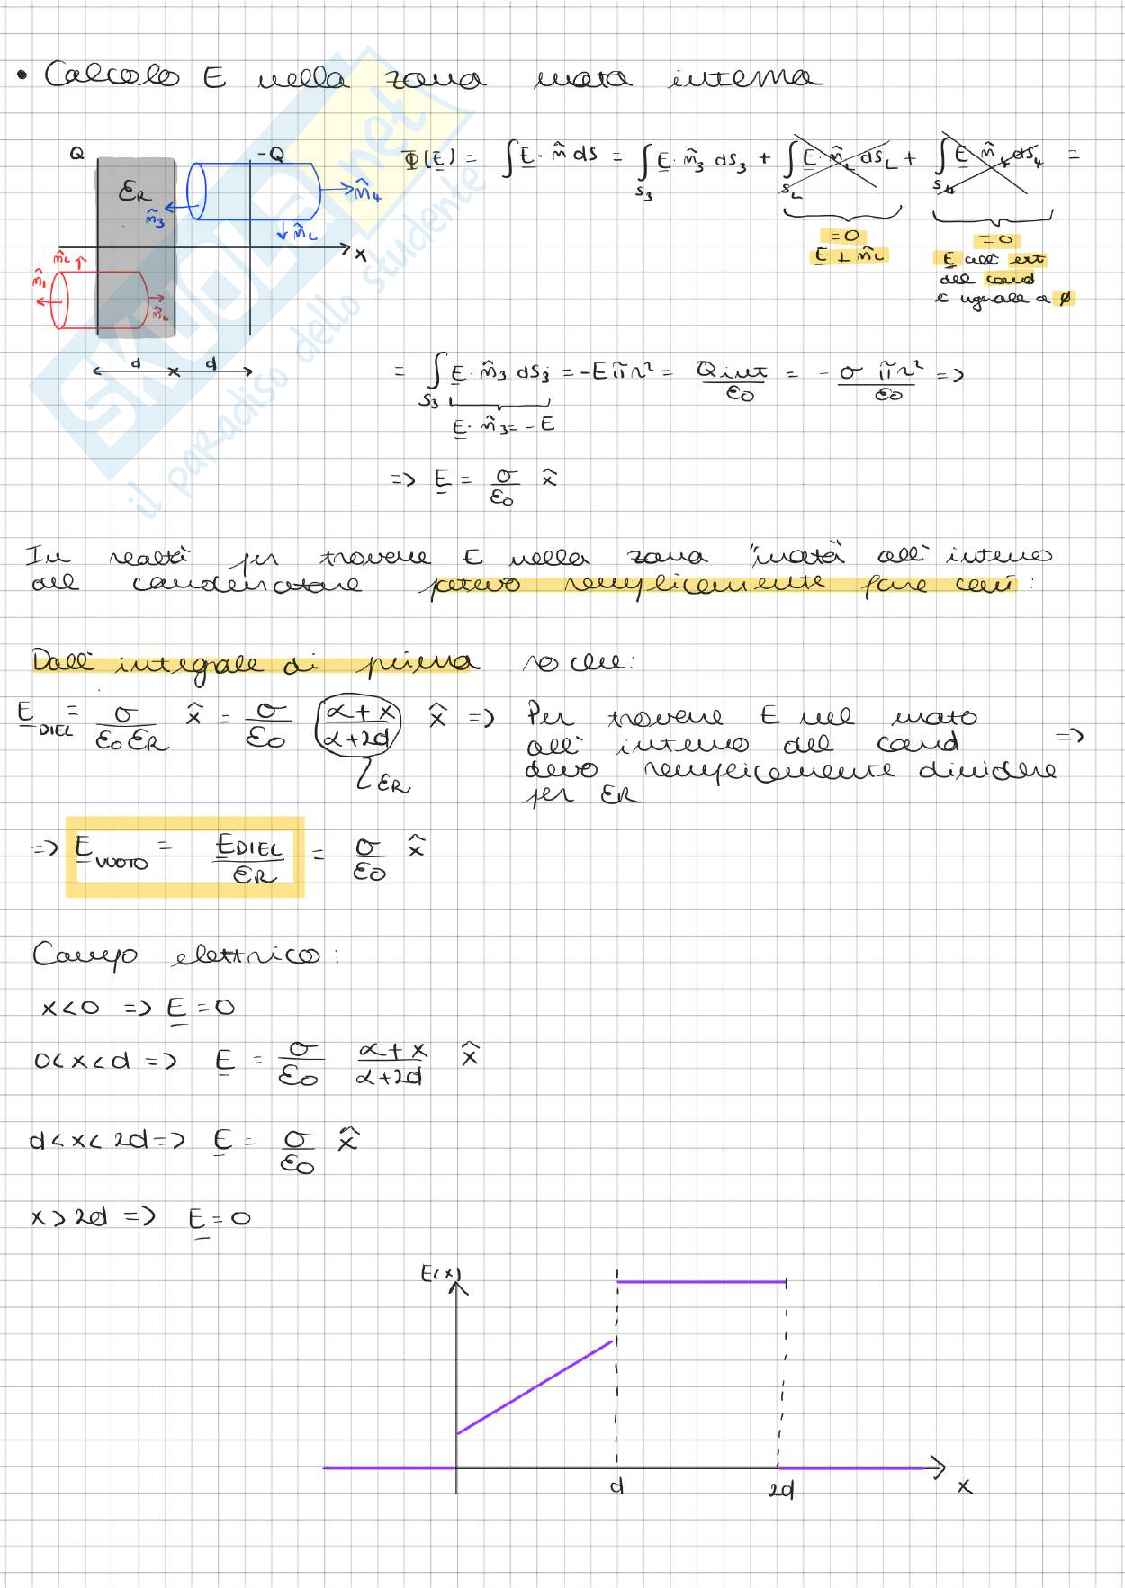 • Calcolo E nella zona vuota interna
Q
-Q
εR
n̂3
n̂4
n̂L
x
n̂L
d
d
Φ(E) = ∫ E · n̂ dS = ∫S3 E · n̂3 dS3 + ∫SL E · n̂L dSL + ∫S4 E · n̂4 dS4 =
=0
E ⊥ n̂L
=0
E all' est
del cond
è uguale a ϕ
= ∫S3 E · n̂3 dS3 = -Eπr² = Qint/ε0 = - σ πr²/ε0 =>
E · n̂3 = -E
=> E = σ/ε0 x̂
In realtà per trovare E nella zona "vuota" all'interno
del condensatore potevo semplicemente fare così:
Dall'integrale di prima so che:
E DIEL = σ/ε0εR x̂ = σ/ε0 (α+x/α+2d) x̂ => Per trovare E nel vuoto
all'interno del cond =>
devo semplicemente dividere
εR
per εR
=> E VUOTO = EDIEL/εR = σ/ε0 x̂
Campo elettrico:
x<0 => E=0
0<x<d => E = σ/ε0 α+x/α+2d x̂
d<x<2d => E = σ/ε0 x̂
x>2d => E=0
E(x)
d
2d
x
SKUOLA.net
il paradiso dello studente